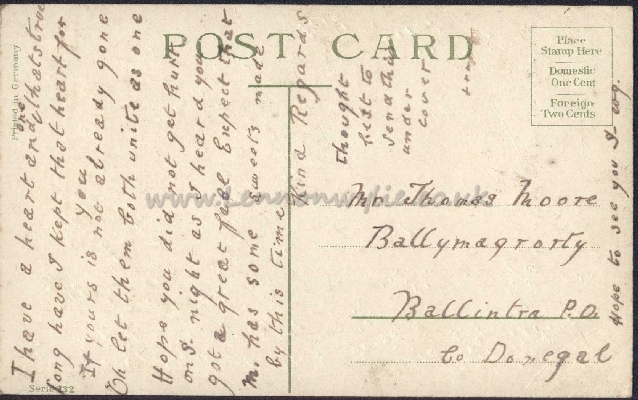 POST CARD
Place
Stamp Here
Domestic
One Cent
Foreign
Two Cents
Printed in Germany
I have a heart and only thats true
Long have I kept that heart for
If yours is not already gone you
Oh let them both unite as one
Hope you did not get hurt
on S. night as I heard you
got a great fall Expect that
M. has some sweets made
by this time Kind Regards
thought
best to
send this
under
cover
Mr Thomas Moore
Ballymagrorty
Ballintra P.O.
Co Donegal
Hope to see you S.
Serie 132
www.Lennonwylie.co.uk